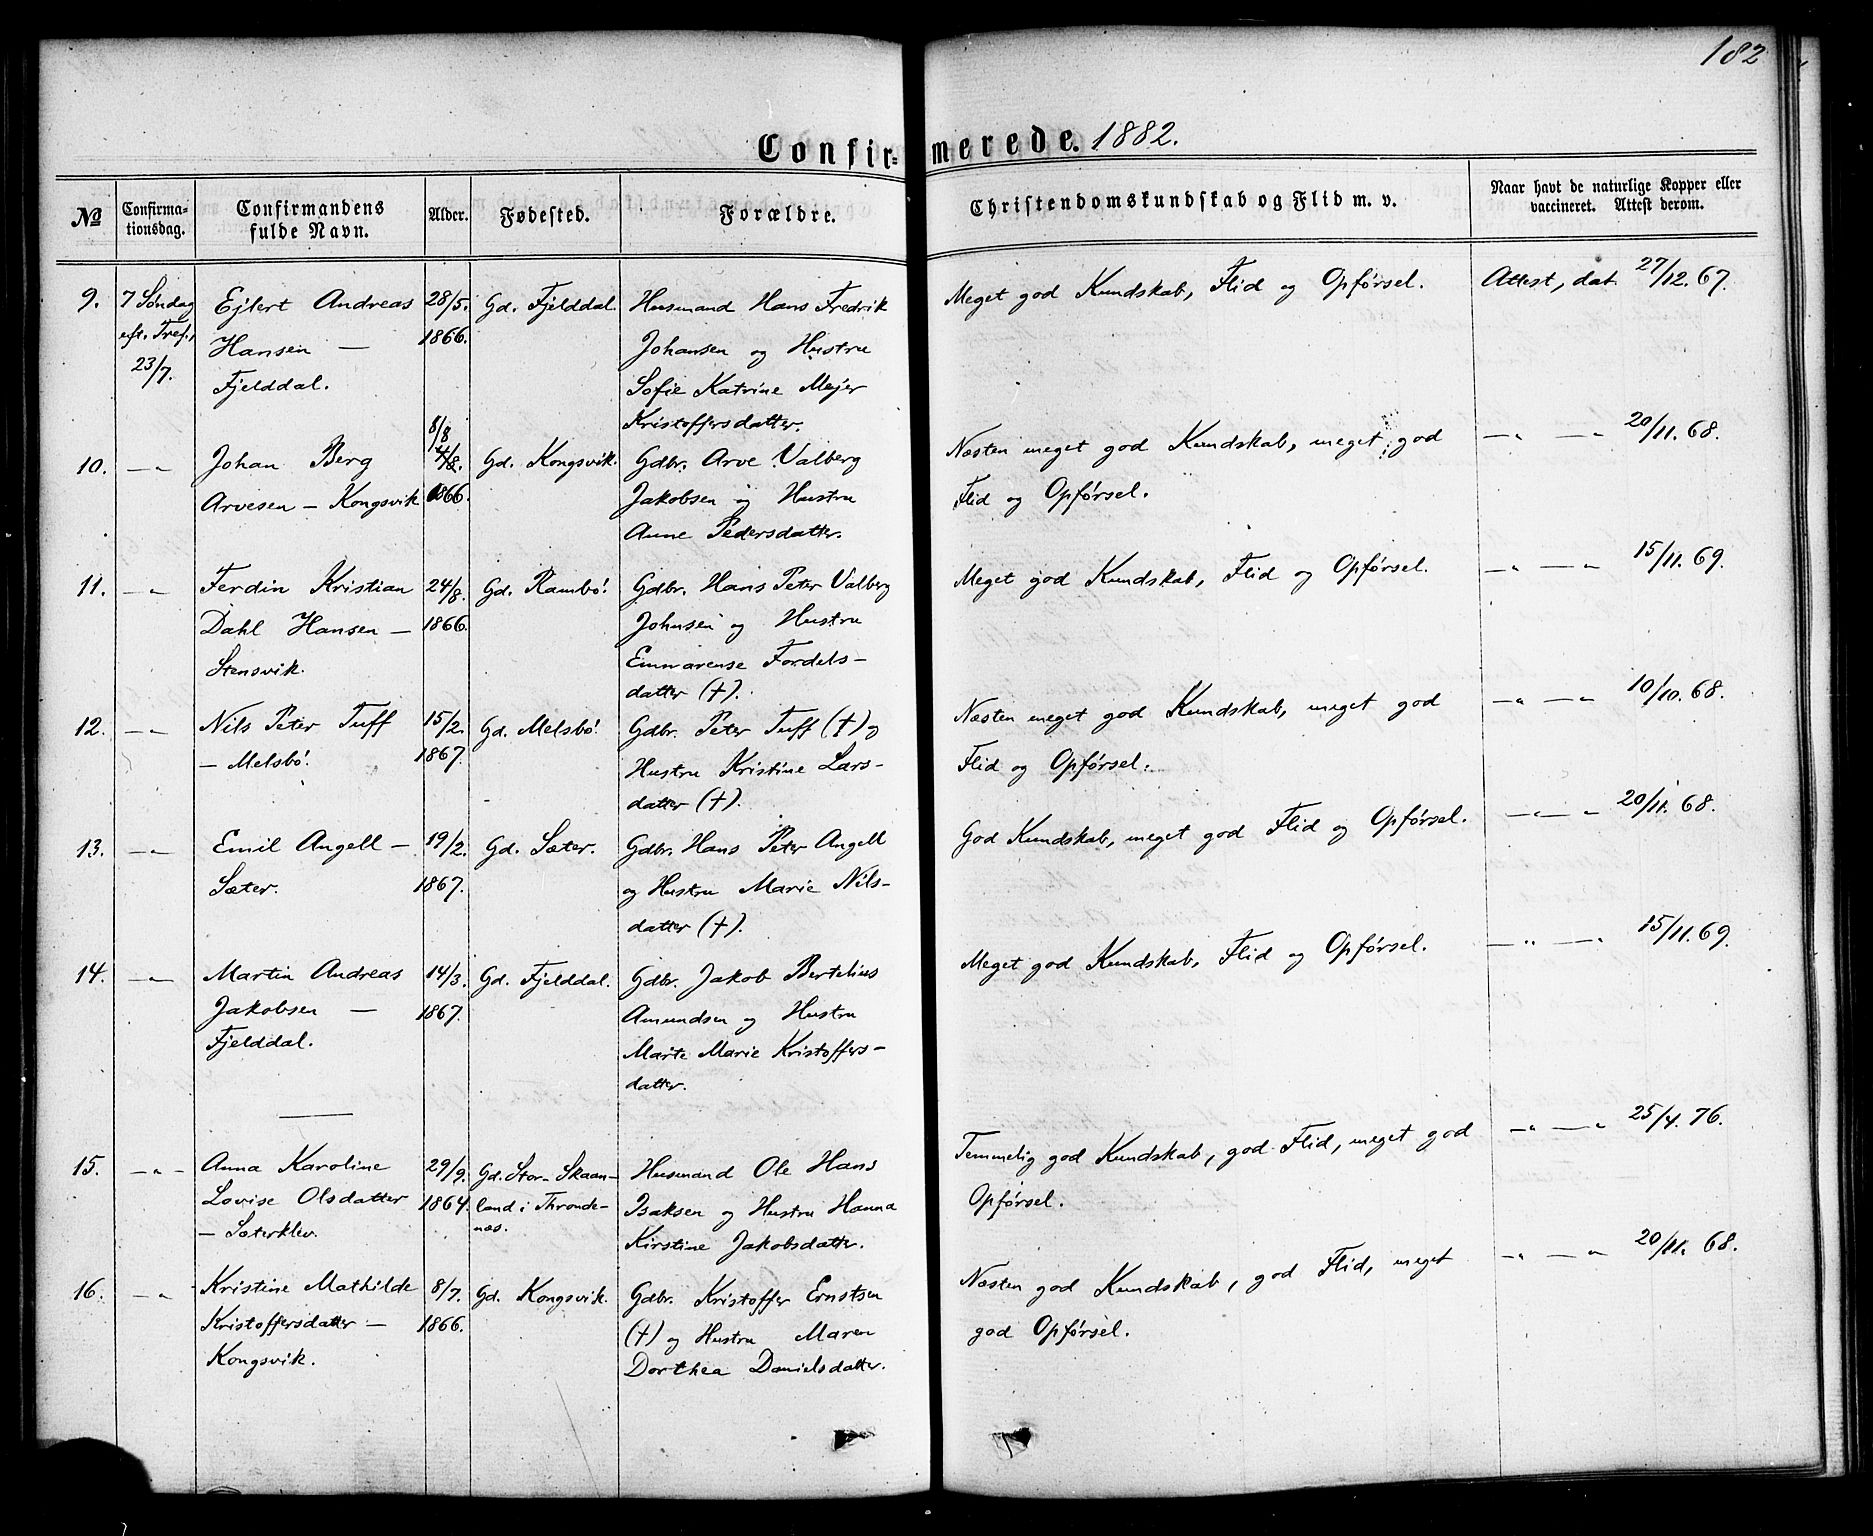 182
Confir- merede. 1882.
№
Confirma-
tionsdag.
Confirmandens
fulde Navn.
Alder.
Fødested.
Forældre.
Christendomskundskab og Flid m. v.
Naar havt de naturlige Kopper eller
vaccineret. Attest derom.
9. 7 Søndag Ejlert Andreas 28/5. Gd. Fjelddal. Husmand Hans Fredrik Meget god Kundskab, Flid og Opførsel. Attest, dat. 27/12. 67.
eft. Tref., Hansen — 1866. Johansen og Hustru
23/7. Fjelddal. Sofie Katrine Mejer
Kristoffersdatter.
8/8
10. —"— Johan Berg 4/8. Gd. Kongsvik. Gdbr. Arve Valberg Næsten meget god Kundskab, meget god —"— —"— 20/11. 68.
Arvesen — Kongsvik 1866. Jakobsen og Hustru Flid og Opførsel.
Anne Pedersdatter.
11. —"— Ferdin Kristian 24/8. Gd. Rambø. Gdbr. Hans Peter Valberg Meget god Kundskab, Flid og Opførsel. —"— —"— 15/11. 69.
Dahl Hansen — 1866. Johnsen og Hustru
Stensvik. Emmarense Fordels-
datter (†).
12. —"— Nils Peter Tuff 15/2. Gd. Melsbø. Gdbr. Peter Tuff (†) og Næsten meget god Kundskab, meget god —"— —"— 10/10. 68.
— Melsbø. 1867. Hustru Kristine Lars- Flid og Opførsel.
datter (†).
13. —"— Emil Angell — 19/2. Gd. Sæter. Gdbr. Hans Peter Angell God Kundskab, meget god Flid og Opførsel. —"— —"— 20/11. 68.
Sæter. 1867. og Hustru Marie Nils-
datter (†).
14. —"— Martin Andreas 14/3. Gd. Fjelddal. Gdbr. Jakob Bertelius Meget god Kundskab, Flid og Opførsel. —"— —"— 15/11. 69.
Jakobsen — 1867. Amundsen og Hustru
Fjelddal. Marte Marie Kristoffers-
datter.
15. —"— Anna Karoline 29/9. Gd. Stor-Skaan- Husmand Ole Hans Temmelig god Kundskab, god Flid, meget god —"— —"— 25/4. 76.
Lovise Olsdatter 1864. land i Thronde- Isaksen og Hustru Hanna Opførsel.
— Sæterklev. næs. Kirstine Jakobsdatter.
16. —"— Kristine Mathilde 8/7. Gd. Kongsvik. Gdbr. Kristoffer Ernstsen Næsten god Kundskab, god Flid, meget —"— —"— 20/11. 68.
Kristoffersdatter — 1866. (†) og Hustru Maren god Opførsel.
Kongsvik. Dorthea Danielsdatter.